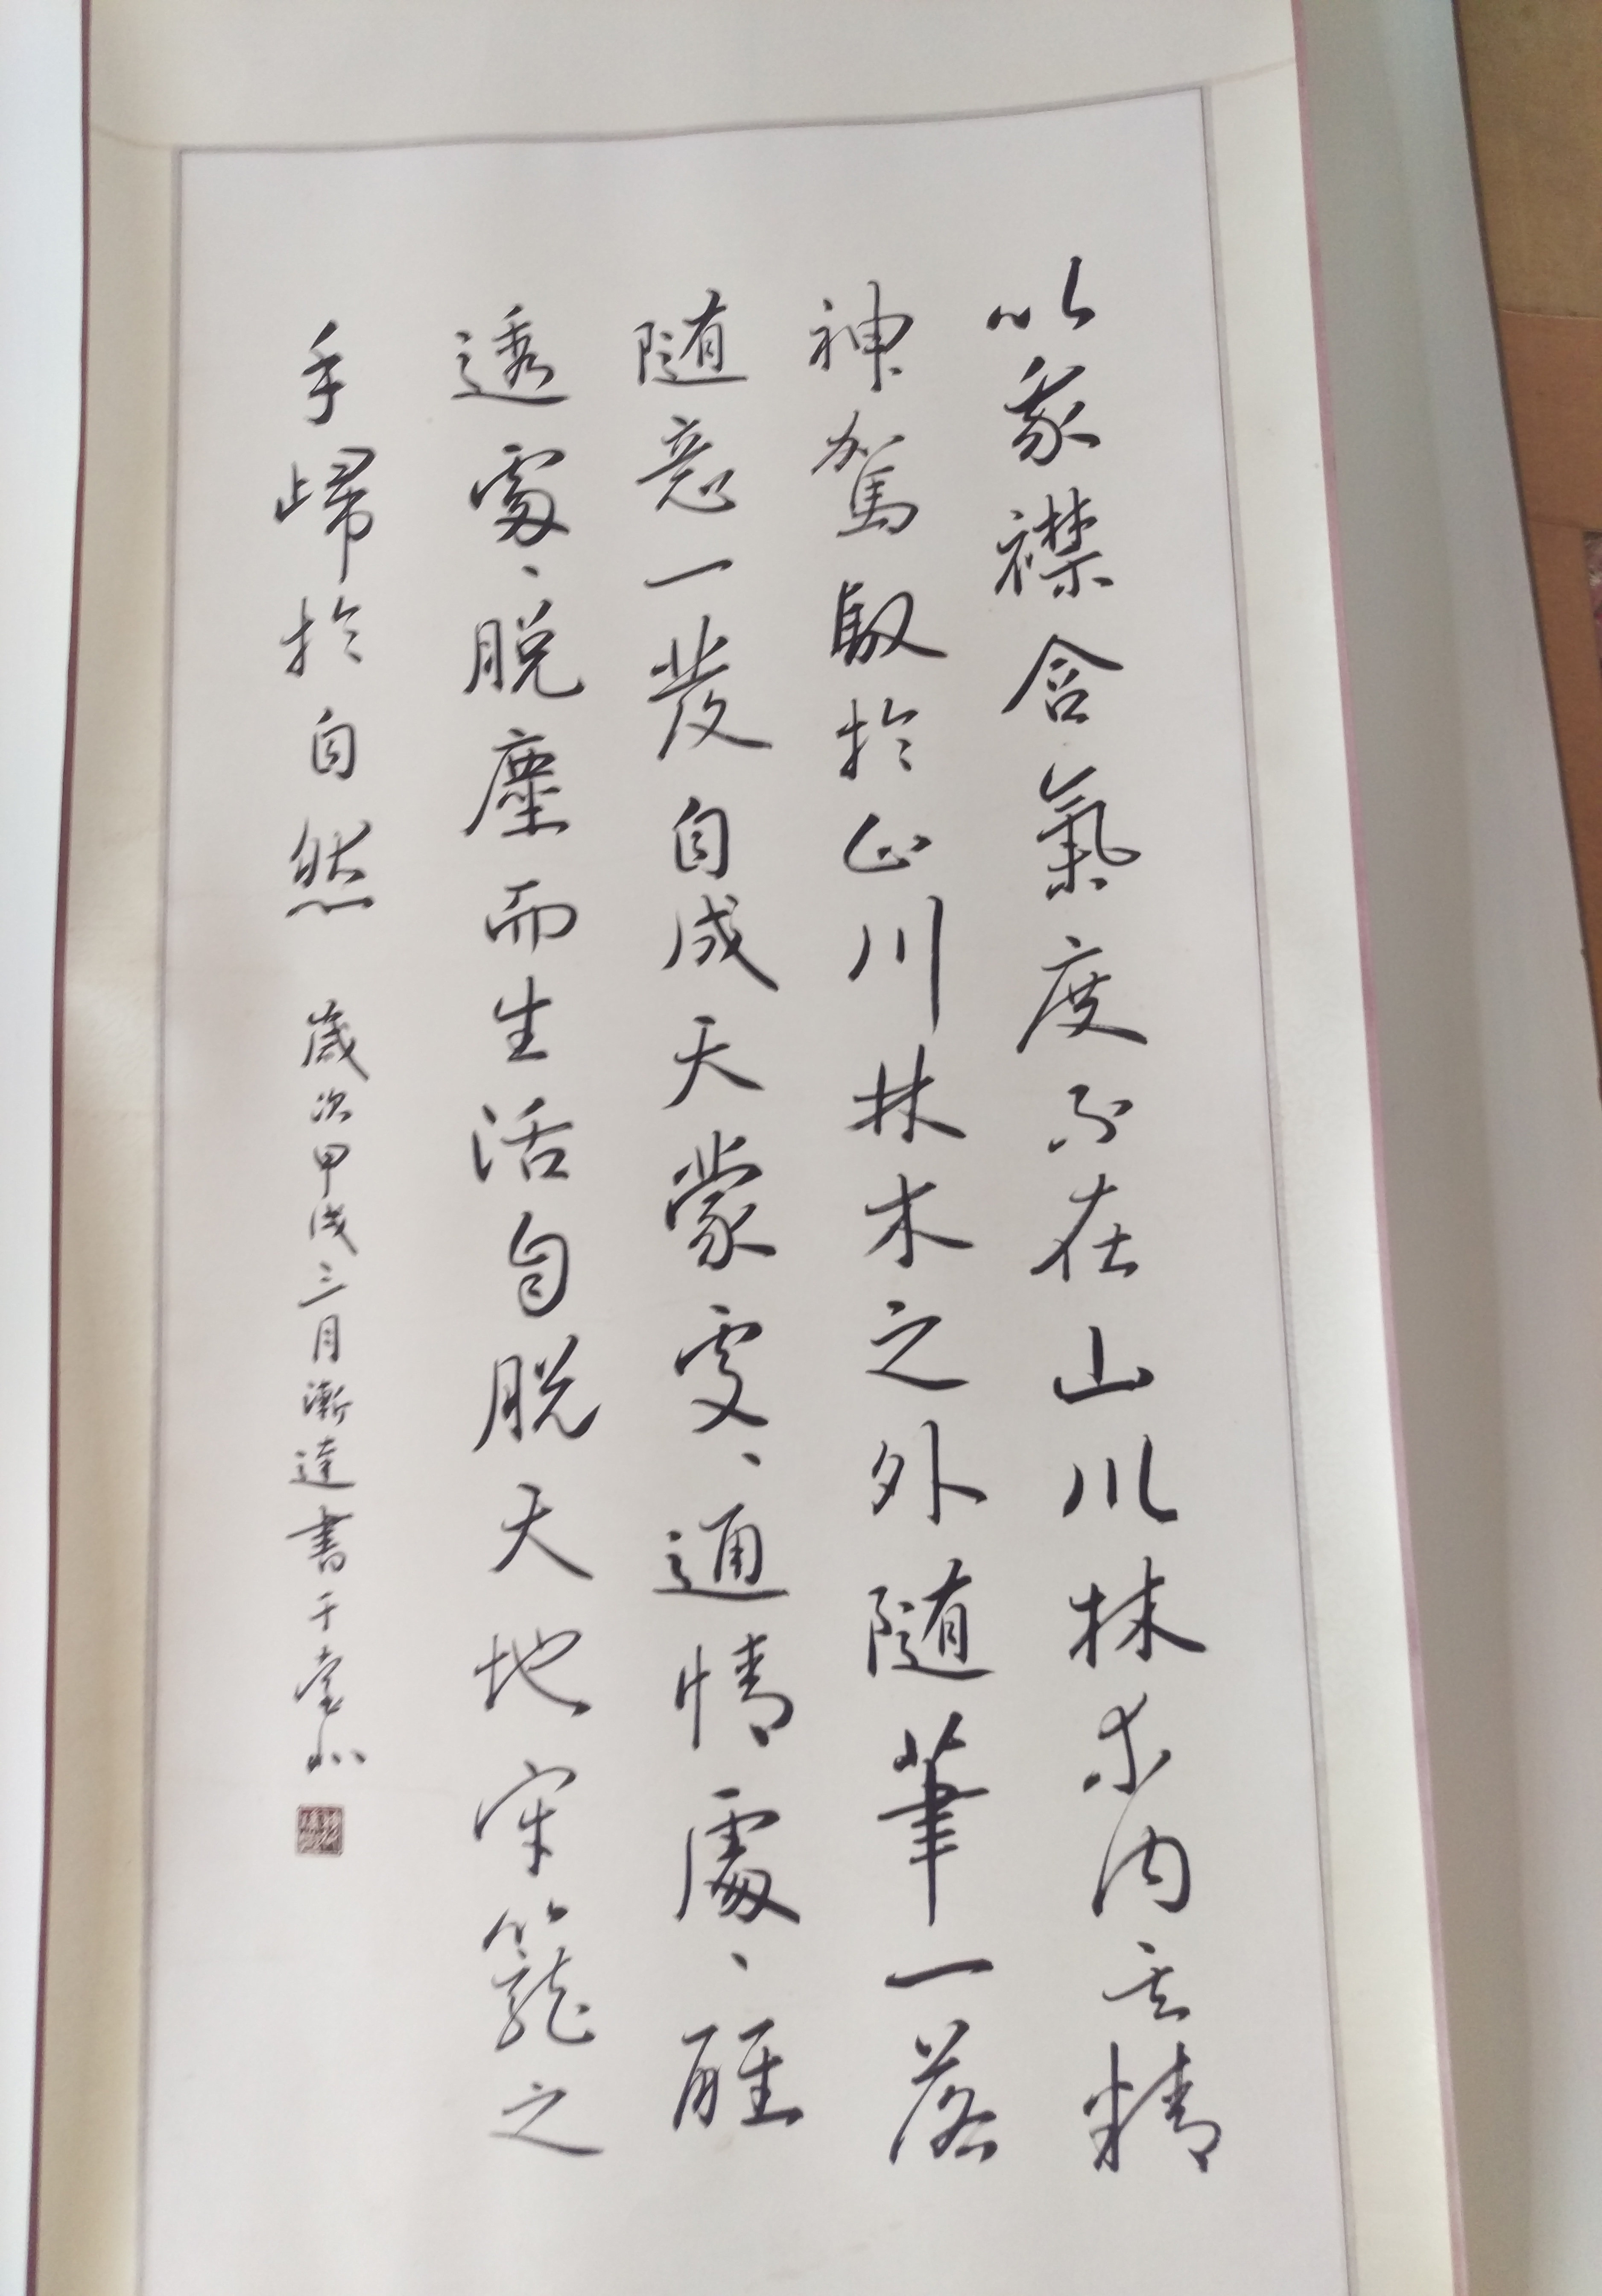 以象襟含氣度不在山川林木內其精
神駕馭於山川林木之外随筆一落
随意一发自成天蒙處、通情處、醒
透處、脱塵而生活自脱天地牢籠之
手歸於自然
歲次甲戌三月漸逵書于